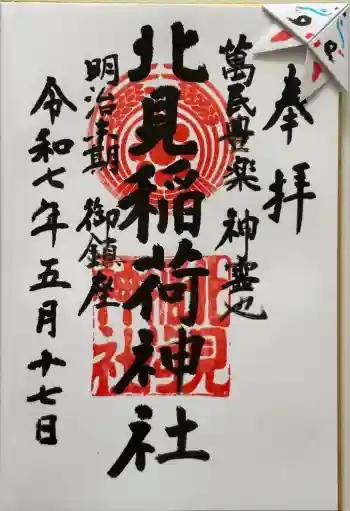 奉拝
萬民豊楽 神霊也
北見稲荷神社
明治生期 御鎮座
令和七年五月十七日
北見稲荷神社